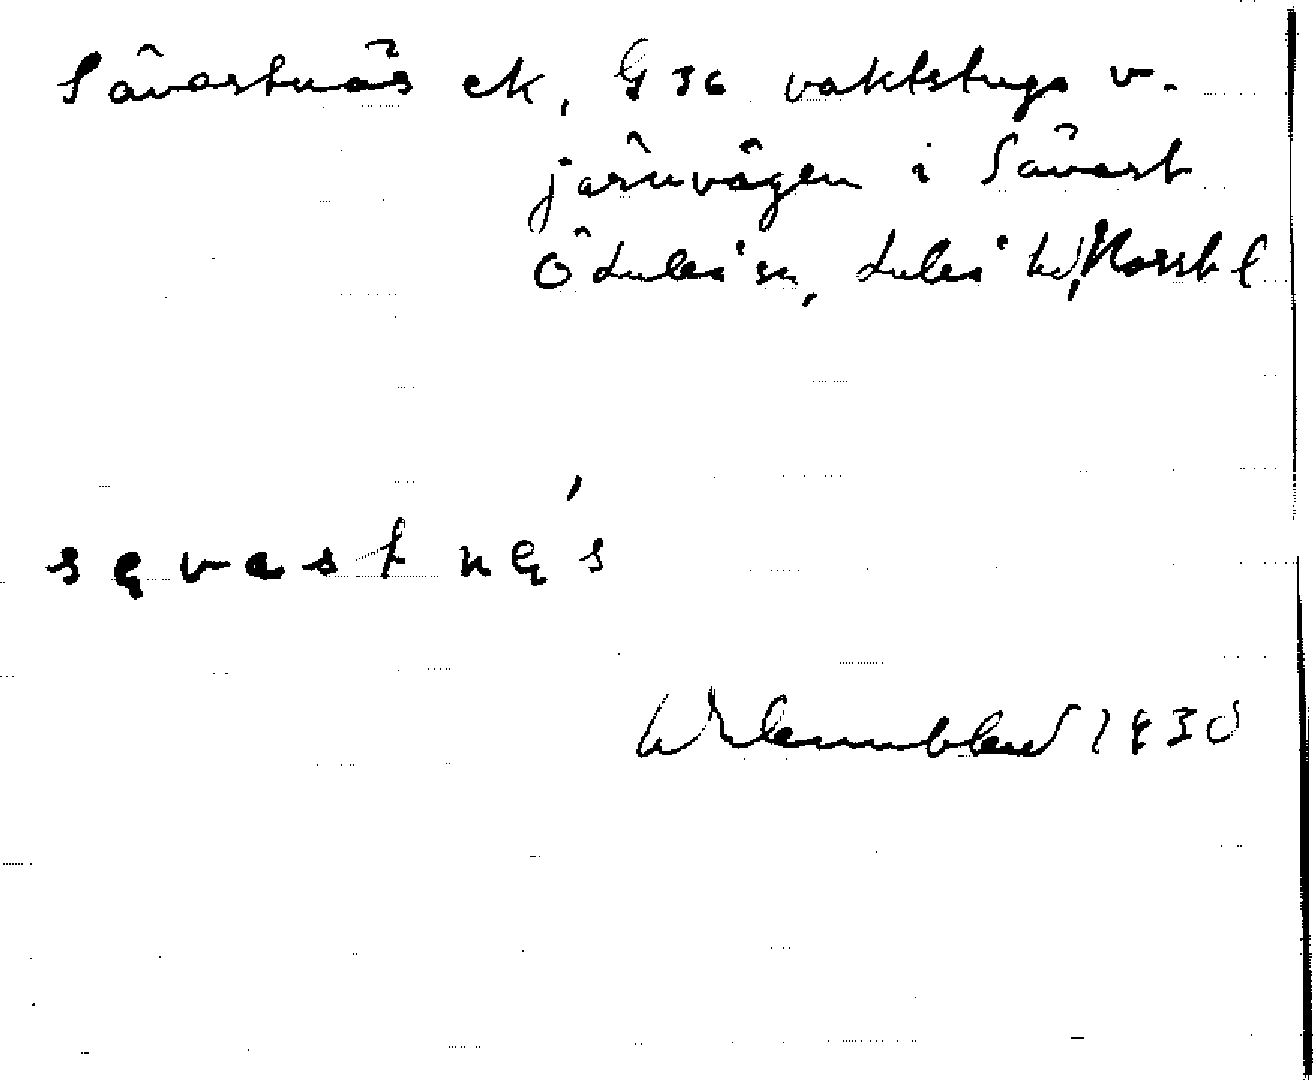 Sävastnäs ek, G 36 vaktstuga v.
järnvägen i Sävast
Ö Luleå sn, Luleå td, Norrb l
sęvast nę's
Wlennblad 1930